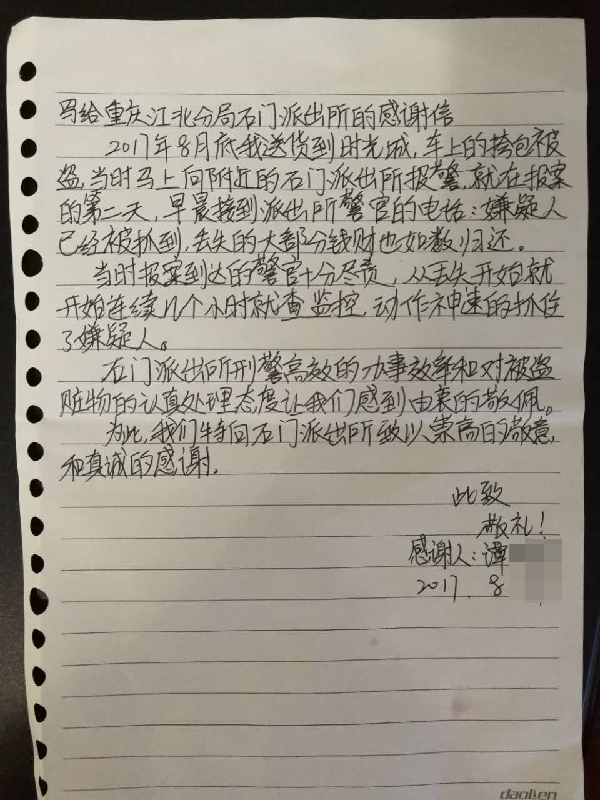 写给重庆江北分局石门派出所的感谢信
2017年8月底我送货到时光城,车上的挎包被
盗,当时马上向附近的石门派出所报警,就在报案
的第二天,早晨接到派出所警官的电话:嫌疑人
已经被抓到,丢失的大部分钱财也如数归还。
当时报案到达的警官十分尽责,从丢失开始就
开始连续几个小时就查监控,动作神速的抓住
了嫌疑人。
石门派出所刑警高效的办事效率和对被盗
赃物的认真处理态度让我们感到由衷的敬佩。
为此,我们特向石门派出所致以崇高的敬意,
和真诚的感谢.
此致
敬礼!
感谢人:谭
2017.8
daolien